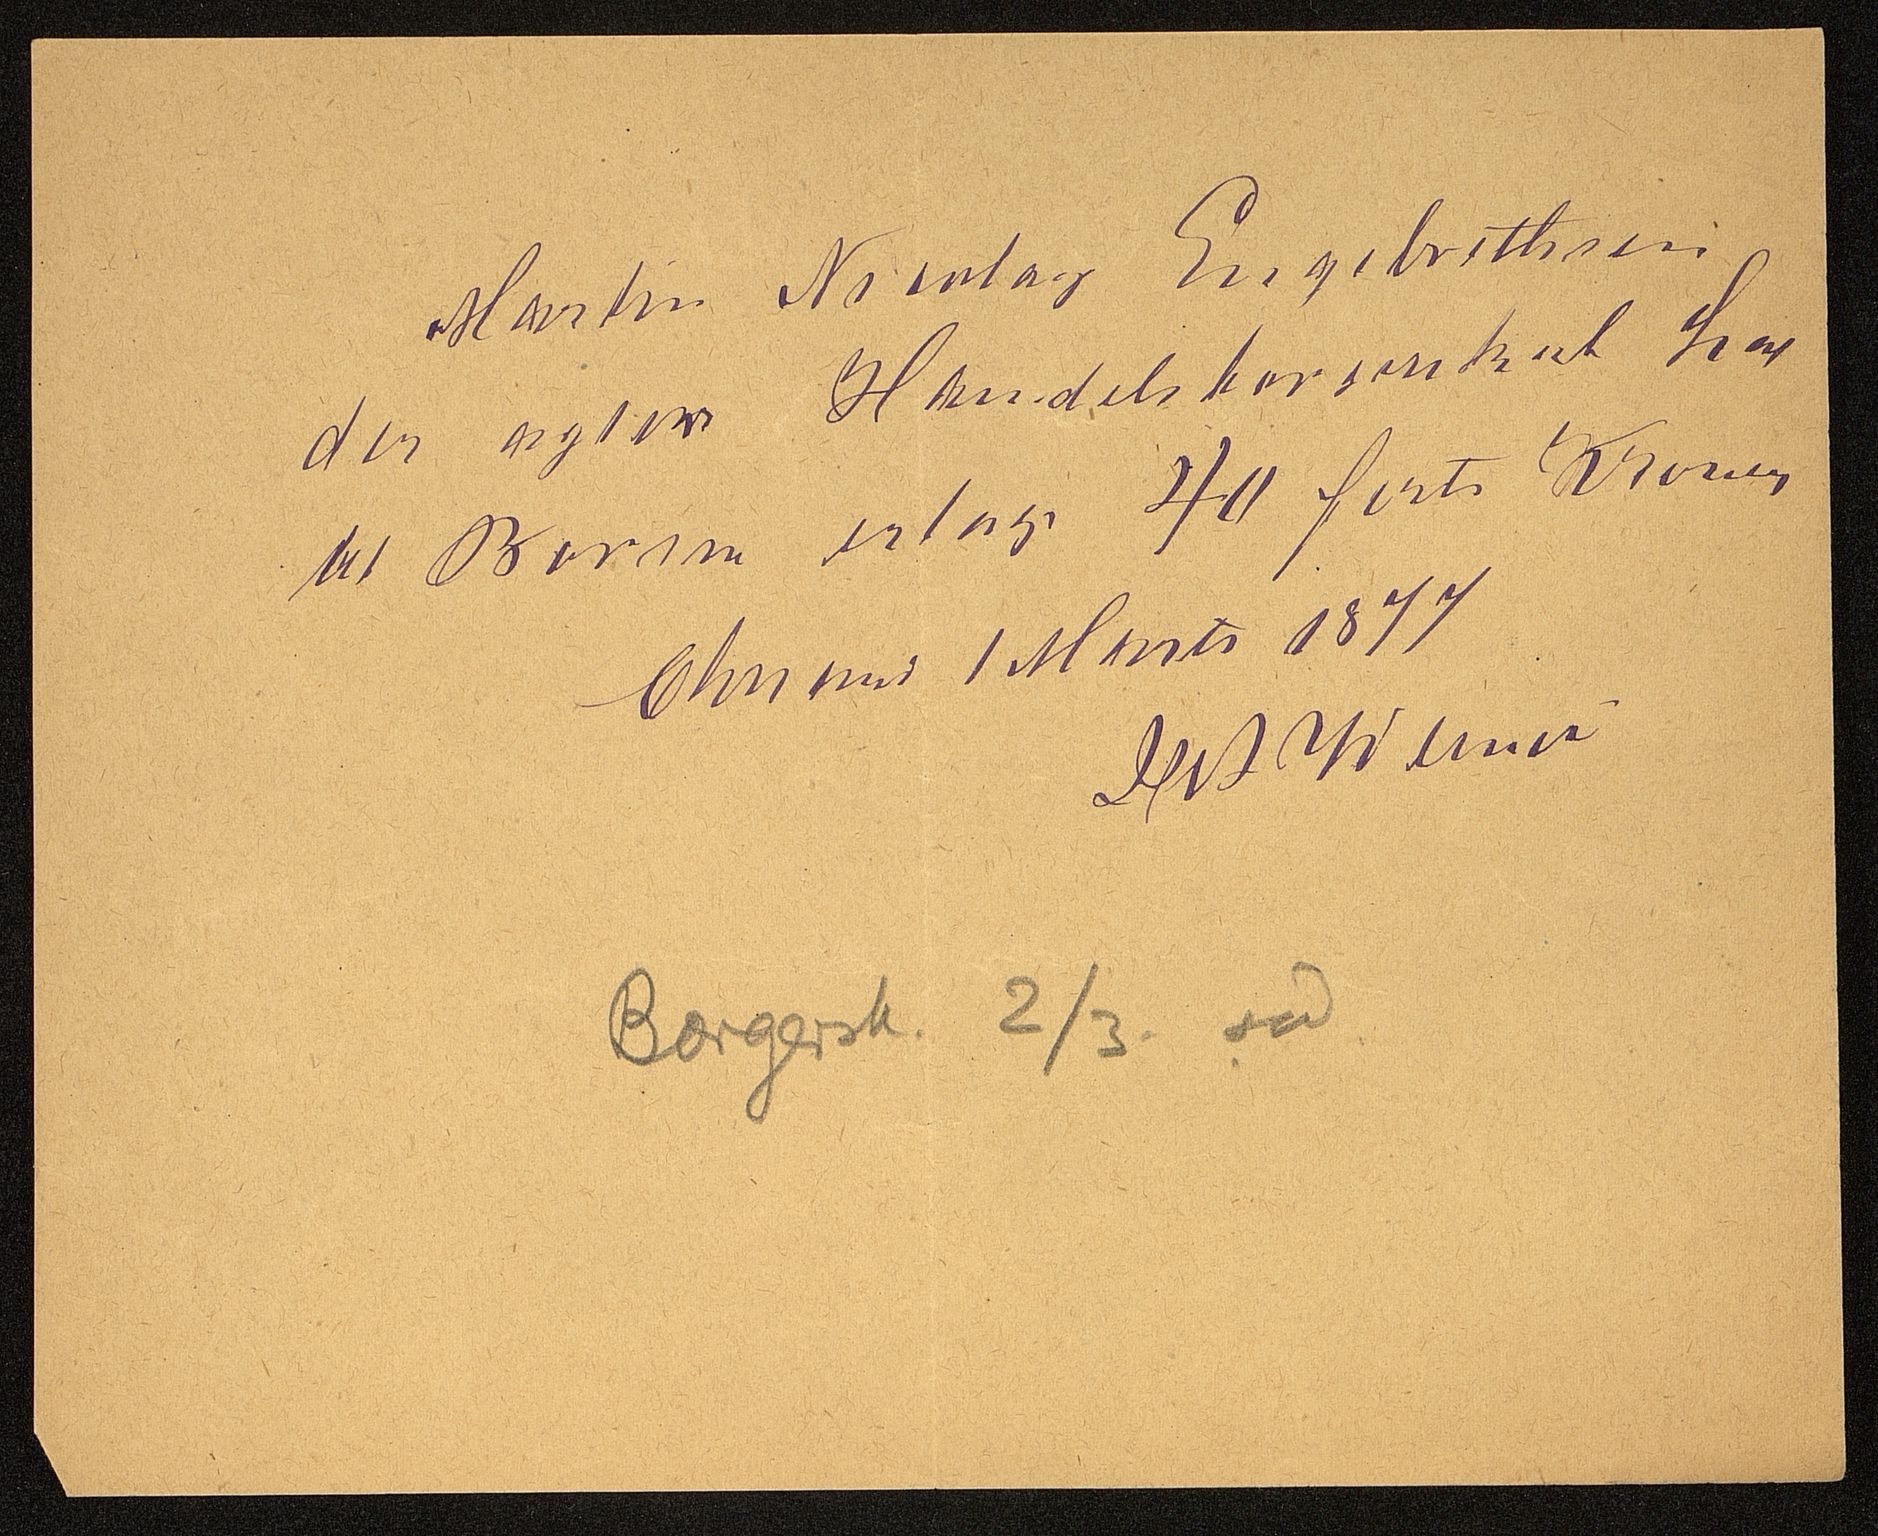 Martin Nicolay Engebrethsen
der agter Handelsborgerskab har
til Borsen erlagt 40 forti Kroner
Chrania 1 Marts 1877
Borgersk. 2/3.